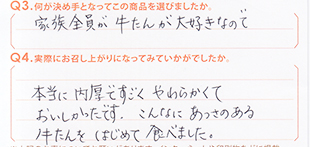 Q3.何が決め手となってこの商品を選びましたか。
家族全員が牛たんが大好きなので
Q4.実際にお召し上がりになってみていかがでしたか。
本当に内厚ですごくやわらかくて
おいしかったです。こんなにあつさのある
牛たんをはじめて食べました。